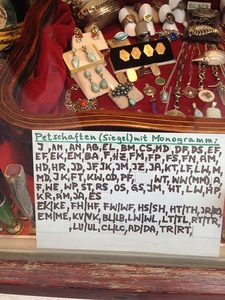 Petschaften (Siegel) mit Monogramm:
J, AN, AN, AG, EL, BM, CS, MD, DF, DS, EF,
EF, EK, EM, BA, F, HZ, FM, FP, FS, FN, AM,
HD, HR, JD, JF, JK, JM, JZ, JA, KT, LF, LW, M,
MD, JK, FT, KW, OD, PF, WT, WN (MM) A,
F, WE, WP, ST, RS, OS, GS, JM, HT, LW, HP,
KR, AM, JA, ES
EK/KE, FH/HF, FW/WF, HS/SH, HT/TH,
EM/ME, KV/VK, BL/LB, LW/WL, LT/TL, RT/TR,
LU/UL, CL/LC, AD/DA, TR/RT,